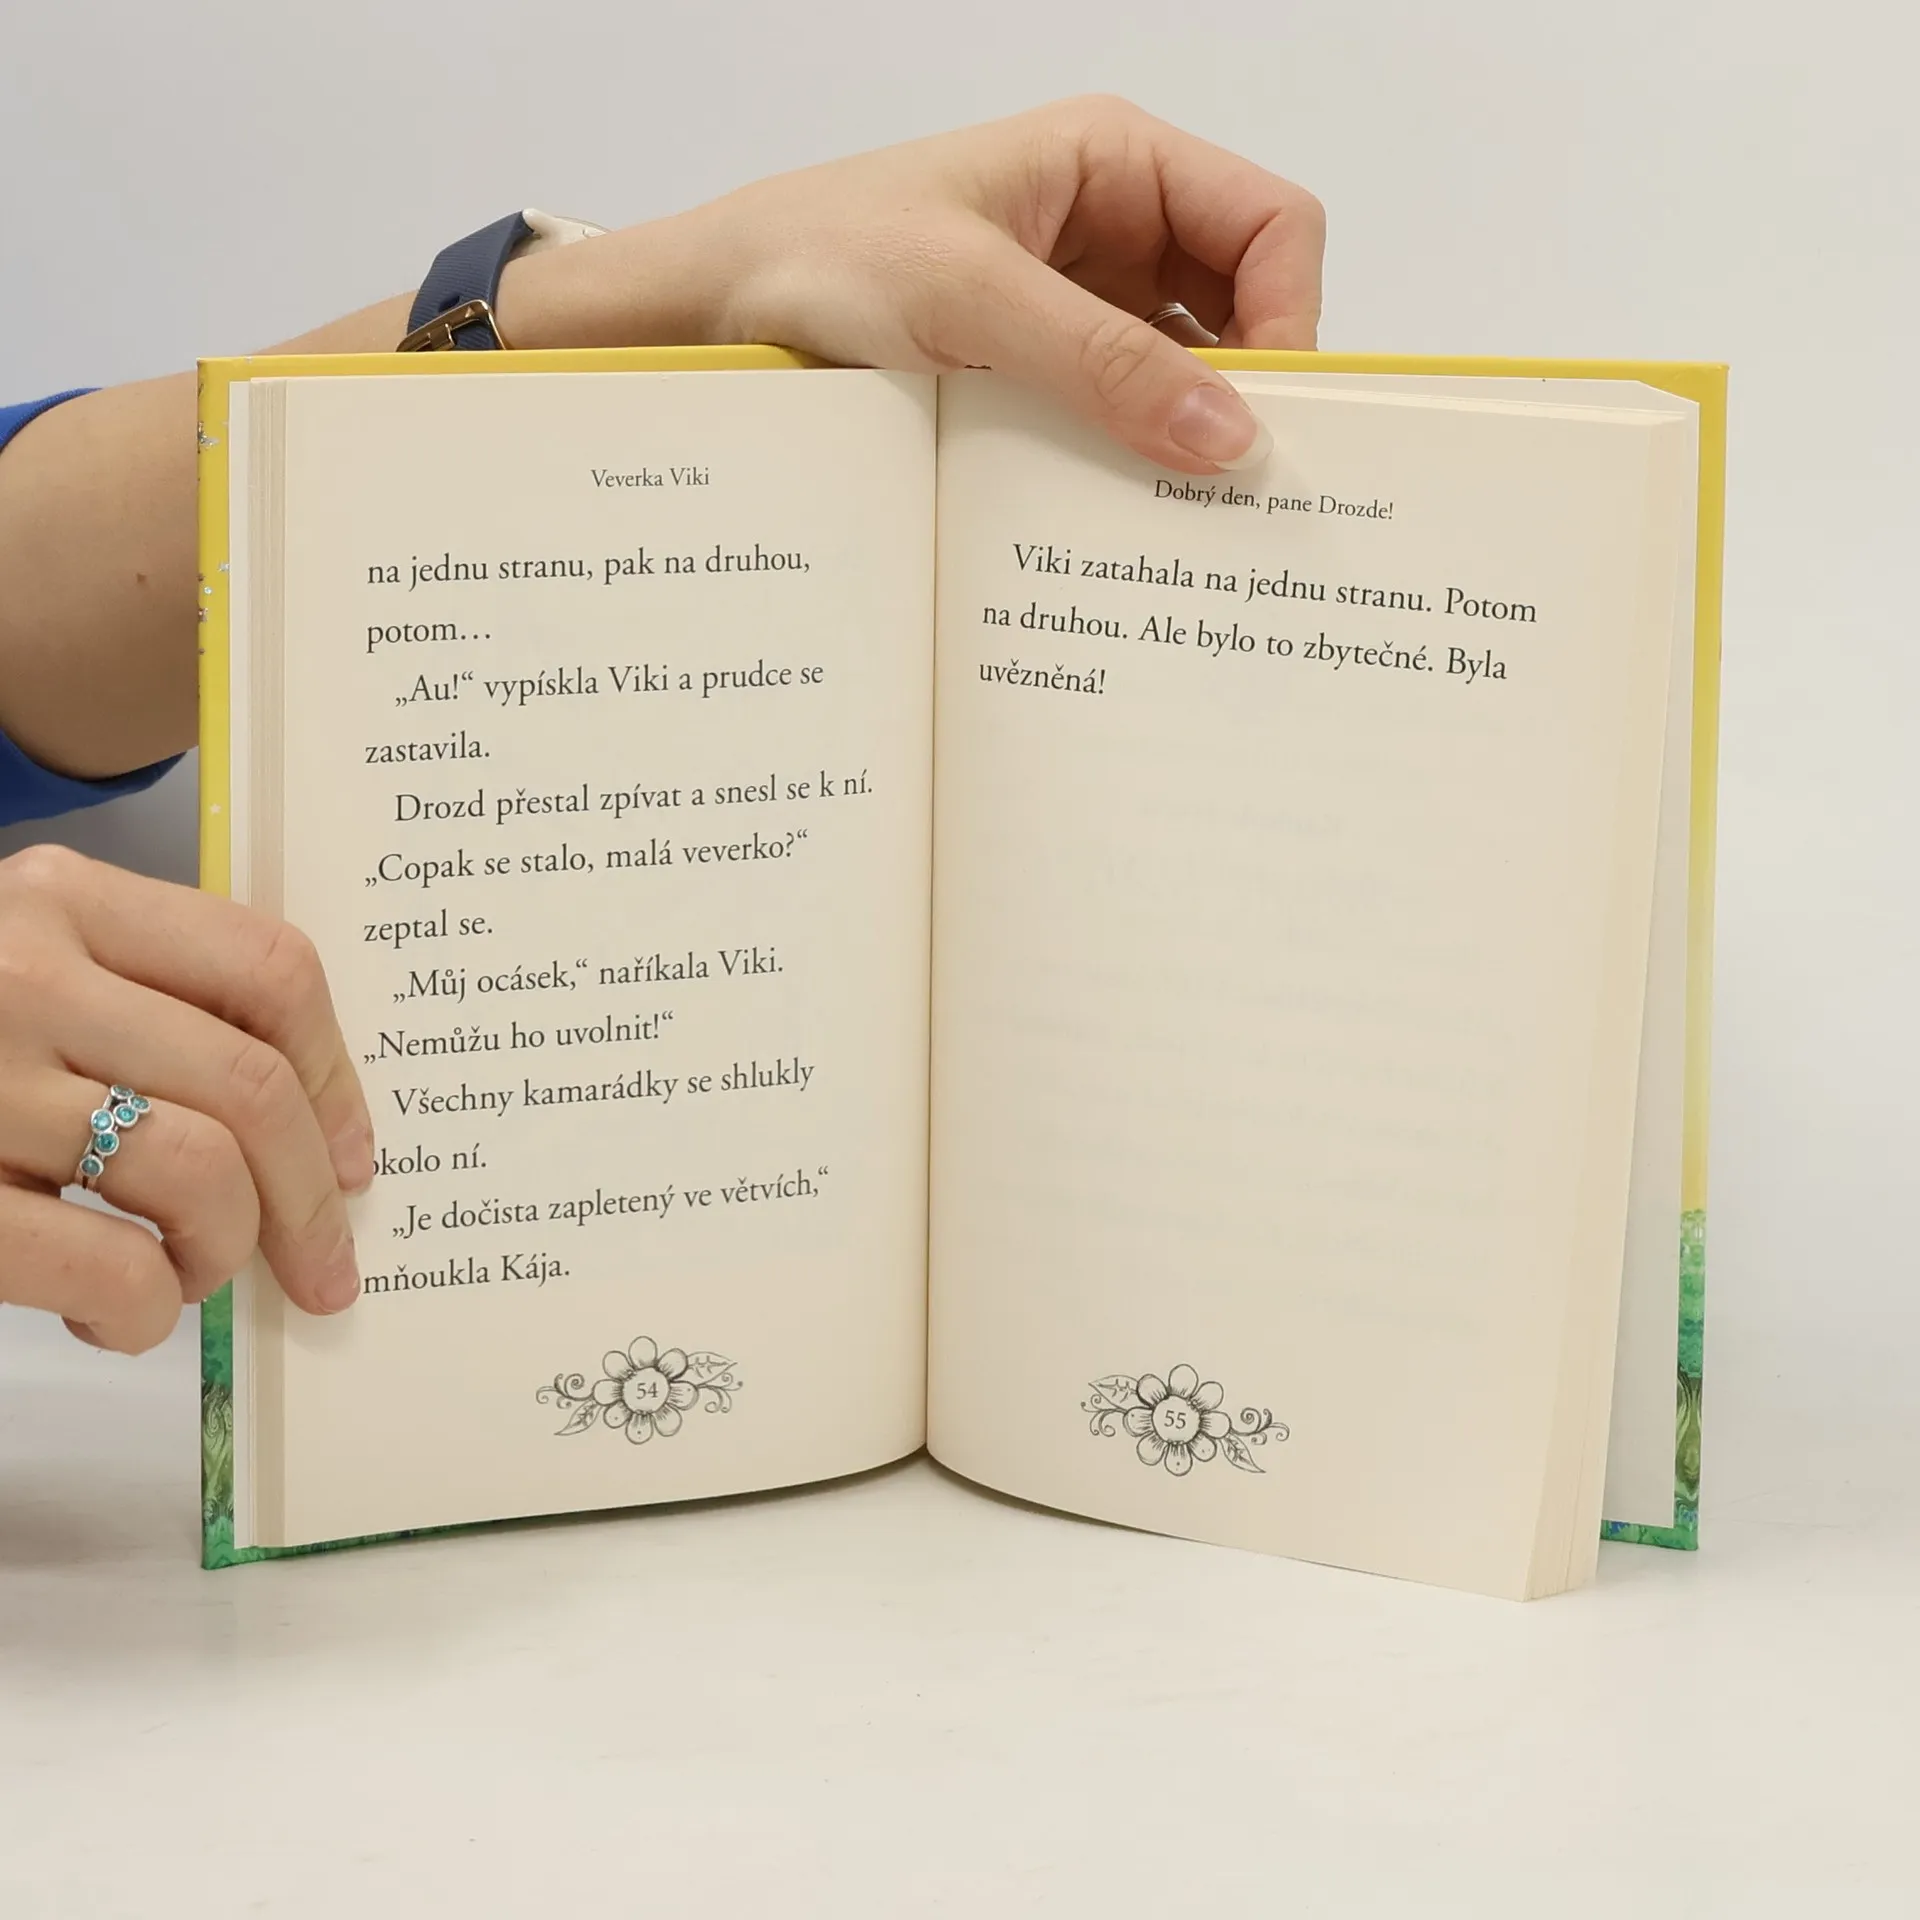 Veverka Viki
na jednu stranu, pak na druhou,
potom…
„Au!“ vypískla Viki a prudce se
zastavila.
Drozd přestal zpívat a snesl se k ní.
„Copak se stalo, malá veverko?“
zeptal se.
„Můj ocásek,“ naříkala Viki.
„Nemůžu ho uvolnit!“
Všechny kamarádky se shlukly
okolo ní.
„Je dočista zapletený ve větvích,“
mňoukla Kája.
54
Dobrý den, pane Drozde!
Viki zatahala na jednu stranu. Potom
na druhou. Ale bylo to zbytečné. Byla
uvězněná!
55